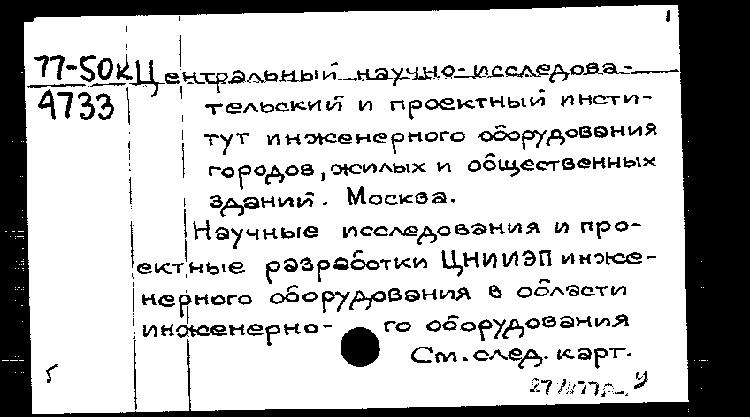 1
77-50к Центральный научно-исследова-
4733 тельский и проектный инсти-
тут инженерного оборудования
городов, жилых и общественных
зданий. Москва.
Научные исследования и про-
ектные разработки ЦНИИЭП инже-
нерного оборудования в области
инженерно-го оборудования
См. след. карт.
5